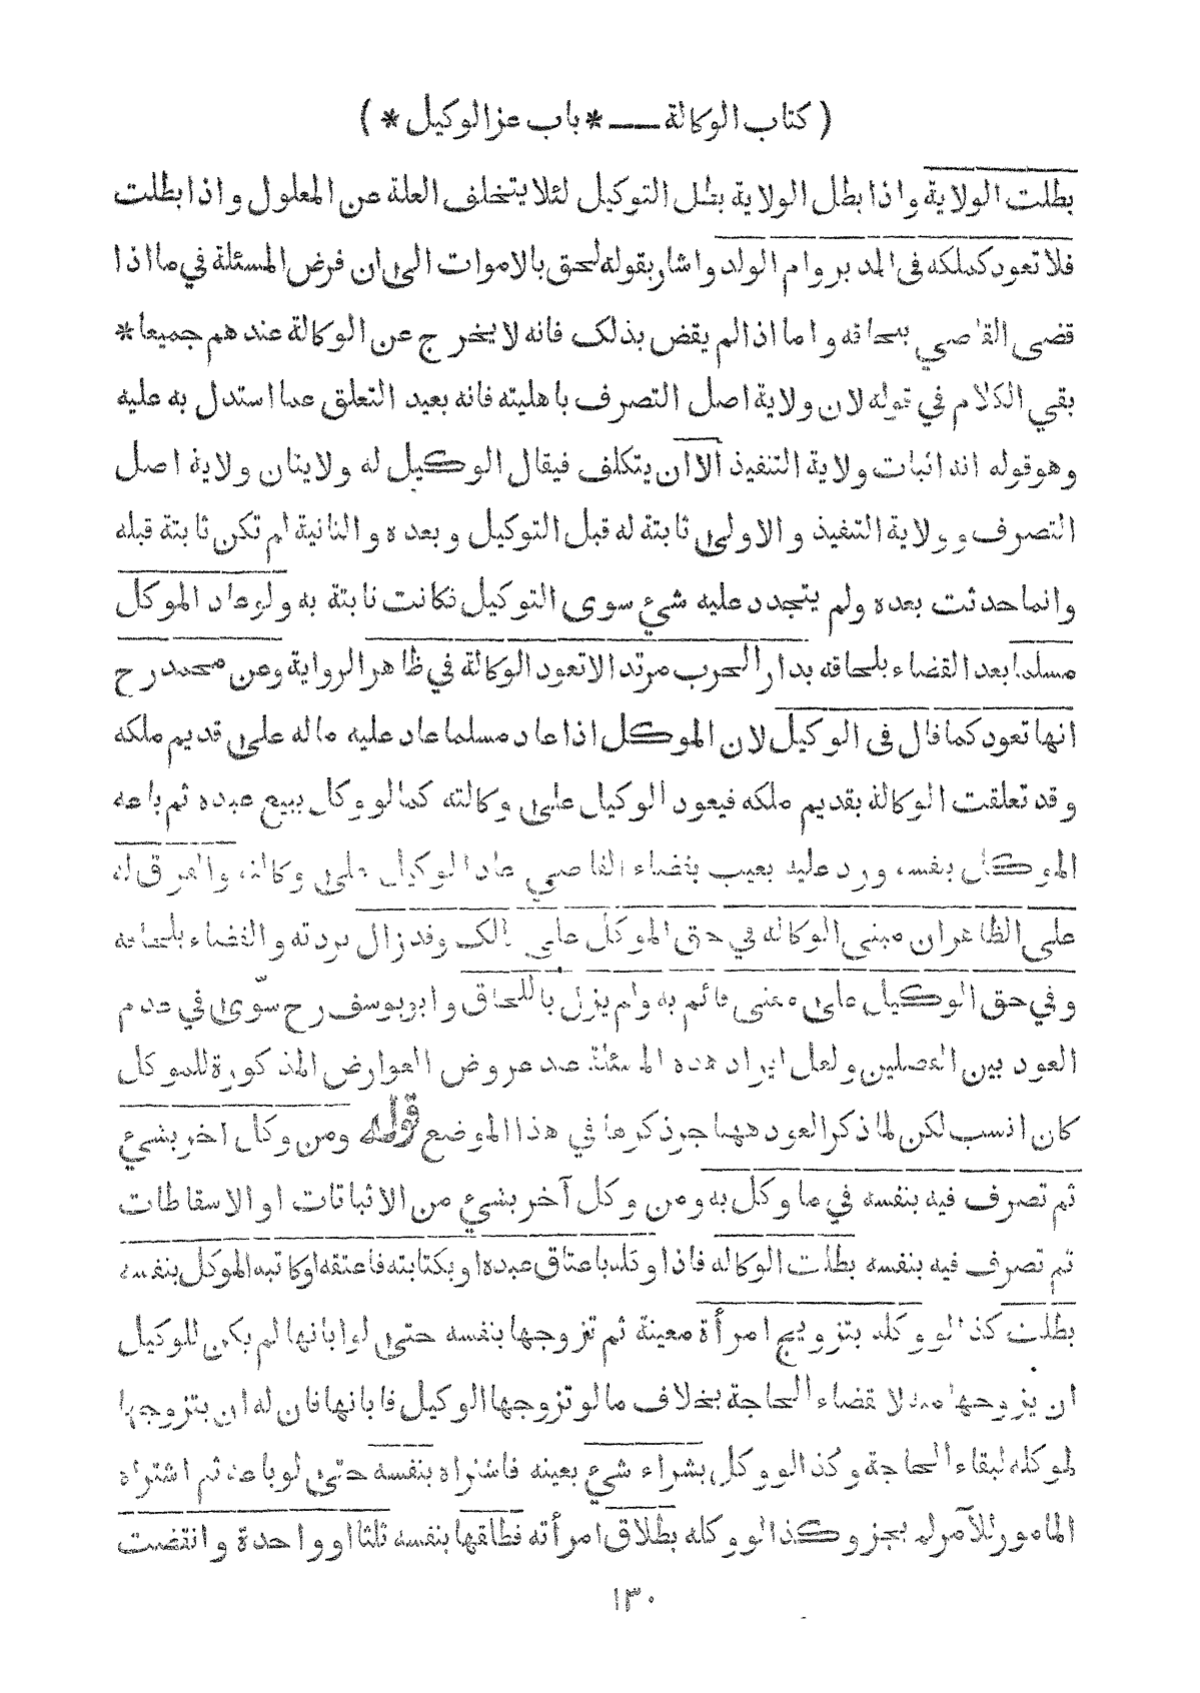 ( كتاب الوكالة ـــ * باب عزالوكيل * )
بطلت الولاية واذا بطل الولاية بطل التوكيل لئلا يتخلف العلة عن المعلول واذا بطلت
فلا تعود كملكه في المدبر وام الولد واشار بقوله لحق بالاموات الى ان فرض المسئلة في ما اذا
قضى القاضي بلحاقه واما اذا لم يقض بذلك فانه لا يخرج عن الوكالة عندهم جميعا *
بقي الكلام في قوله لان ولاية اصل التصرف باهليته فانه بعيد التعلق عما استدل به عليه
وهو قوله انه اثبات ولاية التنفيذ الا ان يتكلف فيقال الوكيل له ولايتان ولاية اصل
التصرف وولاية التنفيذ والاولى ثابتة له قبل التوكيل وبعده والثانية لم تكن ثابتة قبله
وانما حدثت بعده ولم يتجدد عليه شيء سوى التوكيل فكانت ثابتة به ولو عاد الموكل
مسلما بعد القضاء بلحاقه بدار الحرب مرتدا لا تعود الوكالة في ظاهر الرواية وعن محمد رح
انها تعود كما قال في الوكيل لان الموكل اذا عاد مسلما عاد عليه ماله على قديم ملكه
وقد تعلقت الوكالة بقديم ملكه فيعود الوكيل على وكالته كما لو وكل ببيع عبده ثم باعه
الموكل بنفسه ورد عليه بعيب بقضاء القاضي عاد الوكيل على وكالته والفرق له
على الظاهر ان مبنى الوكالة في حق الموكل على الملك وقد زال بردته والقضاء بلحاقه
وفي حق الوكيل على معنى قائم به ولم يزل باللحاق وابو يوسف رح سوّى في عدم
العود بين الفصلين ولعل ايراد هذه المسئلة عند عروض العوارض المذكورة للموكل
كان انسب لكن لما ذكر العود ههنا جر ذكرها في هذا الموضع قوله ومن وكل آخر بشيء
ثم تصرف فيه بنفسه في ما وكل به ومن وكل آخر بشيء من الاثباتات او الاسقاطات
ثم تصرف فيه بنفسه بطلت الوكالة فاذا وكله باعتاق عبده او بكتابته فاعتقه او كاتبه الموكل بنفسه
بطلت كذا لو وكله بتزويج امرأة معينة ثم تزوجها بنفسه حتى لو ابانها لم يكن للوكيل
ان يزوجها منه لا قضاء الحاجة بخلاف ما لو تزوجها الوكيل فابانها فان له ان يتزوجها
لموكله لبقاء الحاجة وكذا لو وكل بشراء شيء بعينه فاشتراه بنفسه حتى لو باعه ثم اشتراه
المأمور للآمر لم يجز وكذا لو وكله بطلاق امرأته فطلقها بنفسه ثلثا او واحدة وانقضت
١٣٠